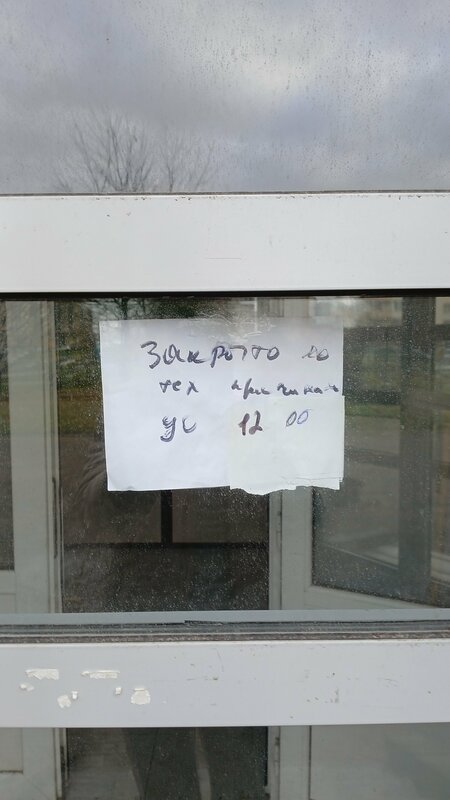 Закрыто по
тех причинам
до 12 00